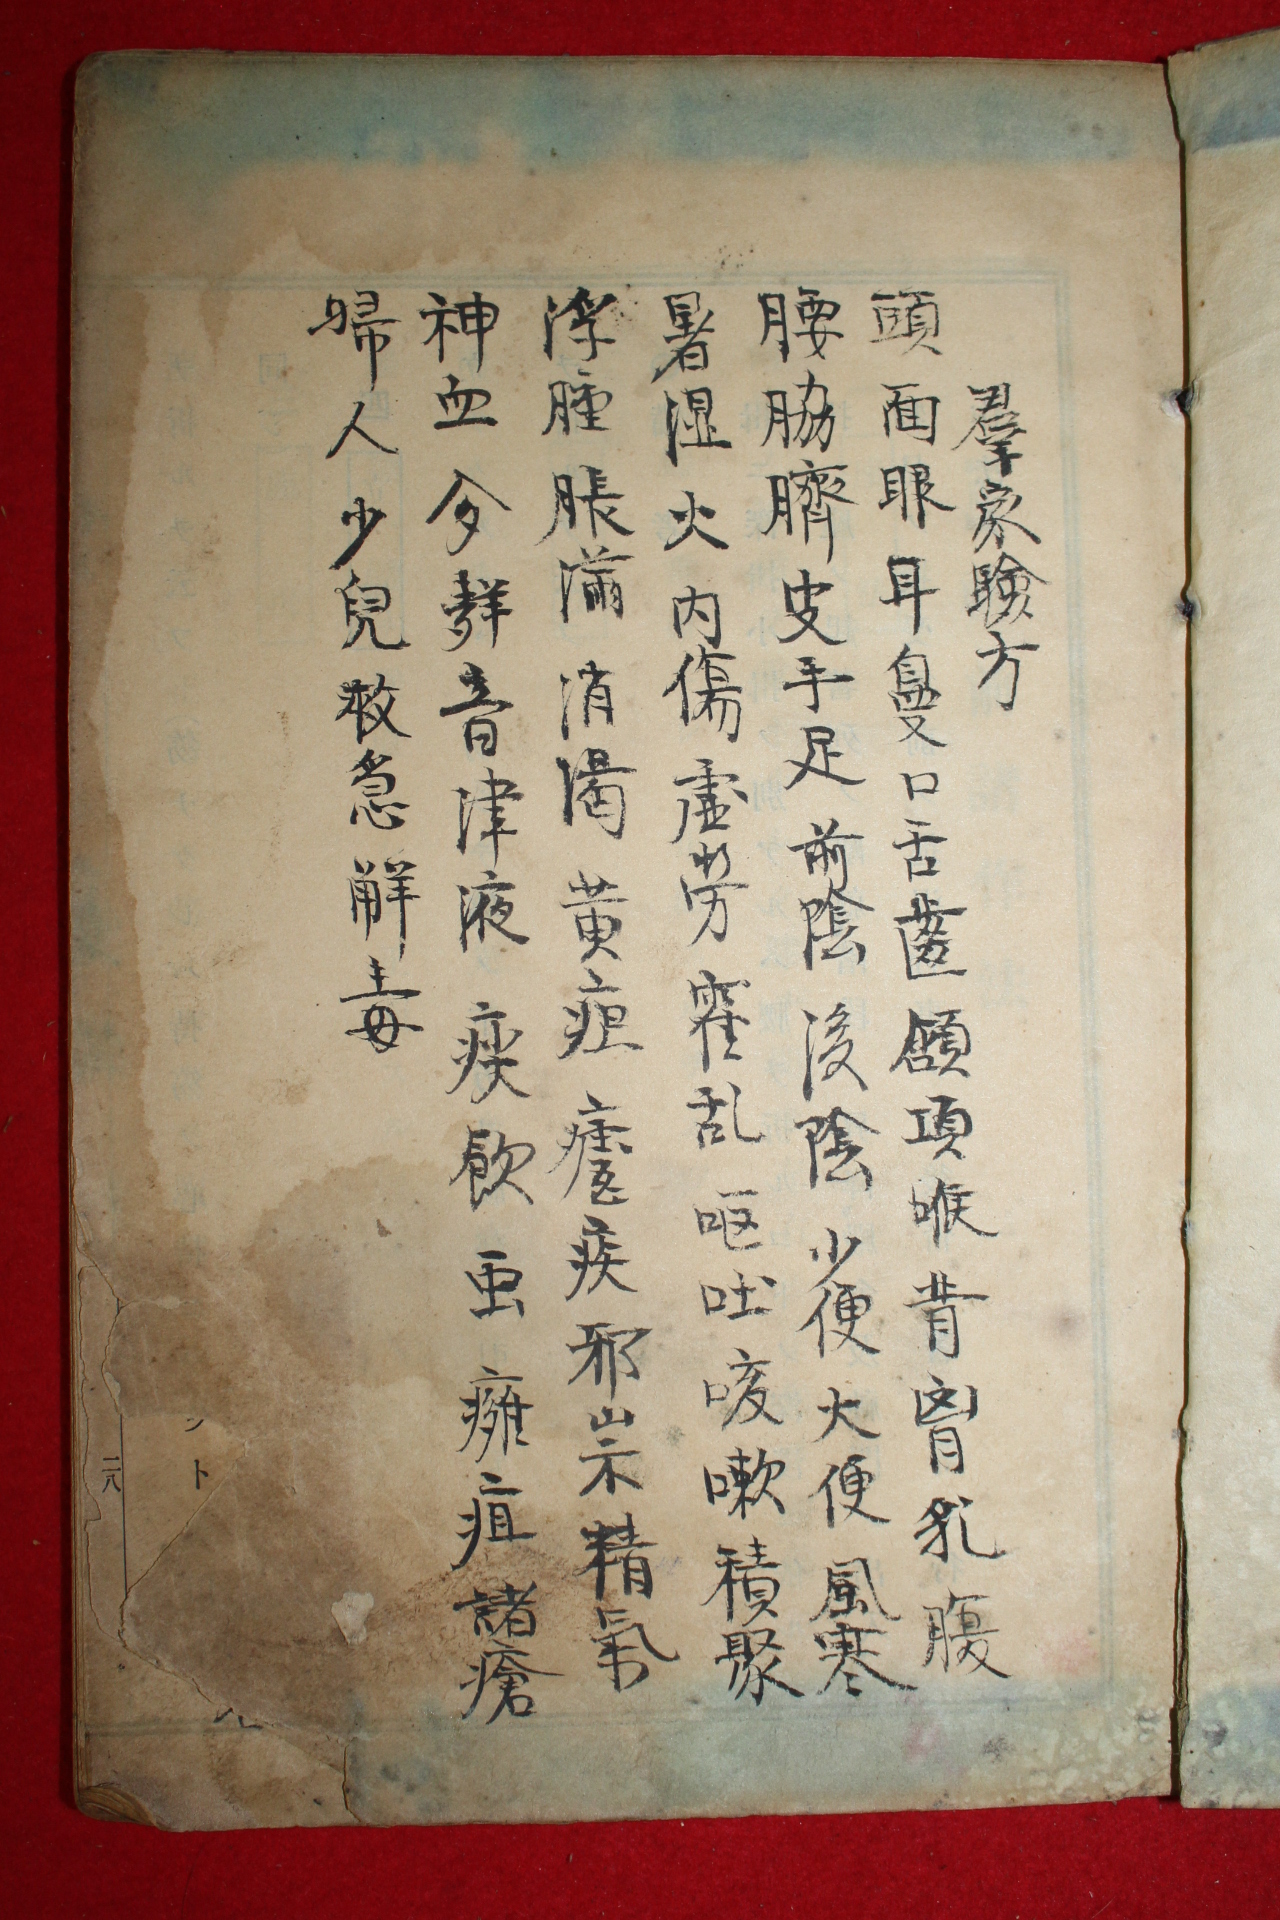 羣家驗方
頭面眼耳鼻口舌齒頷項喉背胷乳腹
腰脇臍皮手足前陰後陰少便大便風寒
暑湿火內傷虛勞霍乱嘔吐咳嗽積聚
浮腫脹滿消渴黄疸瘧疾邪祟精氣
神血今聲音津液痰飮虫癰疽諸瘡
婦人少兒救急解毒
ト
二八